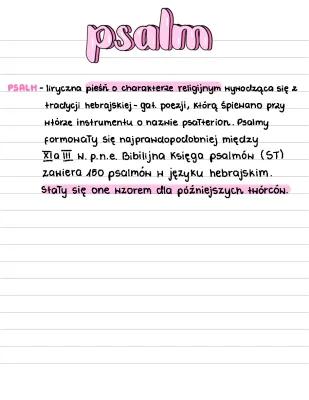 psalm
PSALM - liryczna pieśń o charakterze religijnym wywodząca się z
tradycji hebrajskiej - gat. poezji, którą śpiewano przy
wtórze instrumentu o nazwie psalterion. Psalmy
formowały się najprawdopodobniej między
XI a III w. p.n.e. Bibilijna Księga psalmów (ST)
zawiera 150 psalmów w języku hebrajskim.
Stały się one wzorem dla późniejszych twórców.